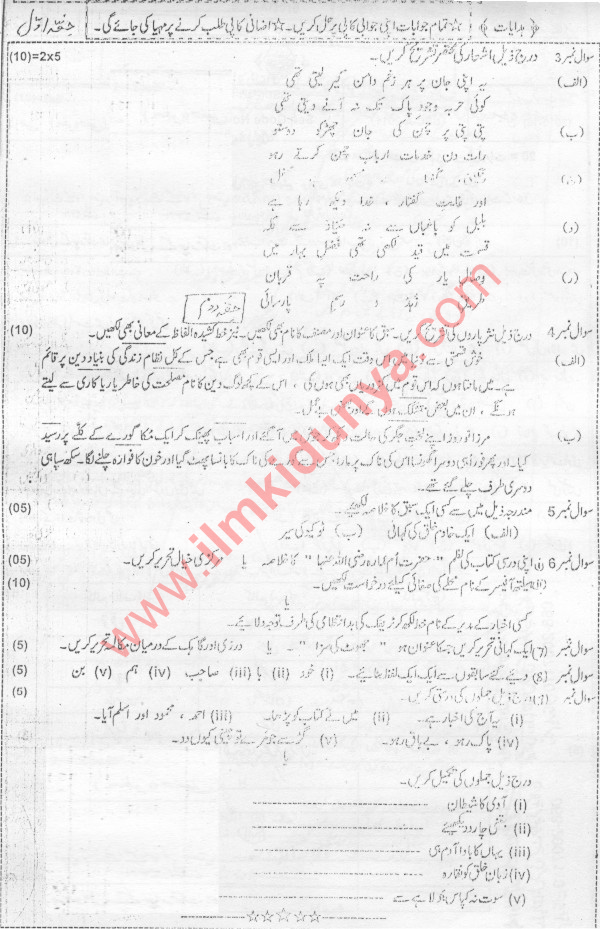 ﴿ ہدایات ﴾ ☆تمام جوابات اپنی جوابی کاپی پر حل کریں۔ ☆اضافی کاپی طلب کرنے پر مہیا کی جائے گی۔ حصّہ اوّل
سوال نمبر 3 درج ذیل اشعار کی مختصر تشریح کریں۔ (10)=2x5
(الف) یہ اپنی جان پر ہر زخم دامن گیر لیتی تھی
کوئی حربہ وجودِ پاک تک نہ آنے دیتی تھی
(ب) پتی پتی پر چمن کی جان چھڑکو دوستو
رات دن خدمات اربابِ چمن کرتے رہو
(ج)
اور غایتِ گفتار ، خدا دیکھ رہا ہے
(د) بلبل کو باغباں سے نہ صیّاد سے گلہ
قسمت میں قید لکھی تھی فصلِ بہار میں
(ر) وصالِ یار کی راحت پہ قربان
زہد و رسمِ پارسائی
حصّہ دوم
سوال نمبر 4 درج ذیل نثر پاروں کی تشریح کریں۔ سبق کا عنوان اور مصنف کا نام بھی لکھیں۔ نیز خط کشیدہ الفاظ کے معانی بھی لکھیں۔ (10)
(الف) خوش قسمتی سے دنیا میں اس وقت ایک ایسا ملک اور ایسی قوم بھی ہے، جس کے کل نظامِ زندگی کی بنیاد دین پر قائم
ہے۔ میں مانتا ہوں کہ اس قوم میں کمزوریاں بھی ہوں گی ، اس کے کچھ لوگ دین کا نام مصلحت کی خاطر یا ریاکاری سے لیتے
ہوں گے ، ان میں بعض
(ب) مرزا نوروز اپنے لختِ جگر کی حالت دیکھ کر جوش میں آ گئے اور اسباب پھینک کر ایک مکا گورے کے کلّے پر رسید
کیا۔ اور پھر فوراً ہی دوسرا گھونسا اس کی ناک پر مارا، جس سے گورے کی ناک کا بانسا پھٹ گیا اور خون کا فوارہ چلنے لگا۔ سکھ سپاہی
دوسری طرف چلے گئے تھے۔
سوال نمبر 5 مندرجہ ذیل میں سے کسی ایک سبق کا خلاصہ لکھیے۔ (05)
(الف) ایک خادمِ خلق کی کہانی (ب) ٹوکیو کی سیر
سوال نمبر 6 (i) اپنی درسی کتاب کی نظم "حضرت اُمِ عمارہ رضی اللہ عنہا" کا خلاصہ یا مرکزی خیال تحریر کریں۔ (05)
(ii) ہیلتھ آفیسر کے نام محلے کی صفائی کیلئے درخواست لکھیں۔ (10)
یا
کسی اخبار کے مدیر کے نام خط لکھ کر ٹریفک کی بدانتظامی کی طرف توجہ دلائیے۔
سوال نمبر (7) ایک کہانی تحریر کریں جس کا عنوان ہو "جھوٹ کی سزا"۔ یا درزی اور گاہک کے درمیان مکالمہ تحریر کریں۔ (5)
سوال نمبر (8) دیئے گئے سابقوں سے ایک ایک لفظ بنائیے۔ (i) خود (ii) با (iii) صاحب (iv) ہم (v) بن (5)
سوال نمبر درج ذیل جملوں کی درستی کریں۔ (5)
(i) یہ آج کی اخبار ہے۔ (ii) میں نے کتاب کو پڑھا۔ (iii) احمد ، محمود اور اسلم آیا۔
(iv) پاک رہو ، بے باق رہو۔ (v) گڑ سے جو مرے تو کیوں دو۔
یا
درج ذیل جملوں کی تکمیل کریں۔
(i) آدمی کا شیطان
(ii) جتنی چادر دیکھیے
(iii) یہاں کا باوا آدم ہی
(iv) زبانِ خلق کو نقارہ
(v) سوت نہ کپاس جولاہے سے
☆☆☆☆☆
www.ilmkidunya.com